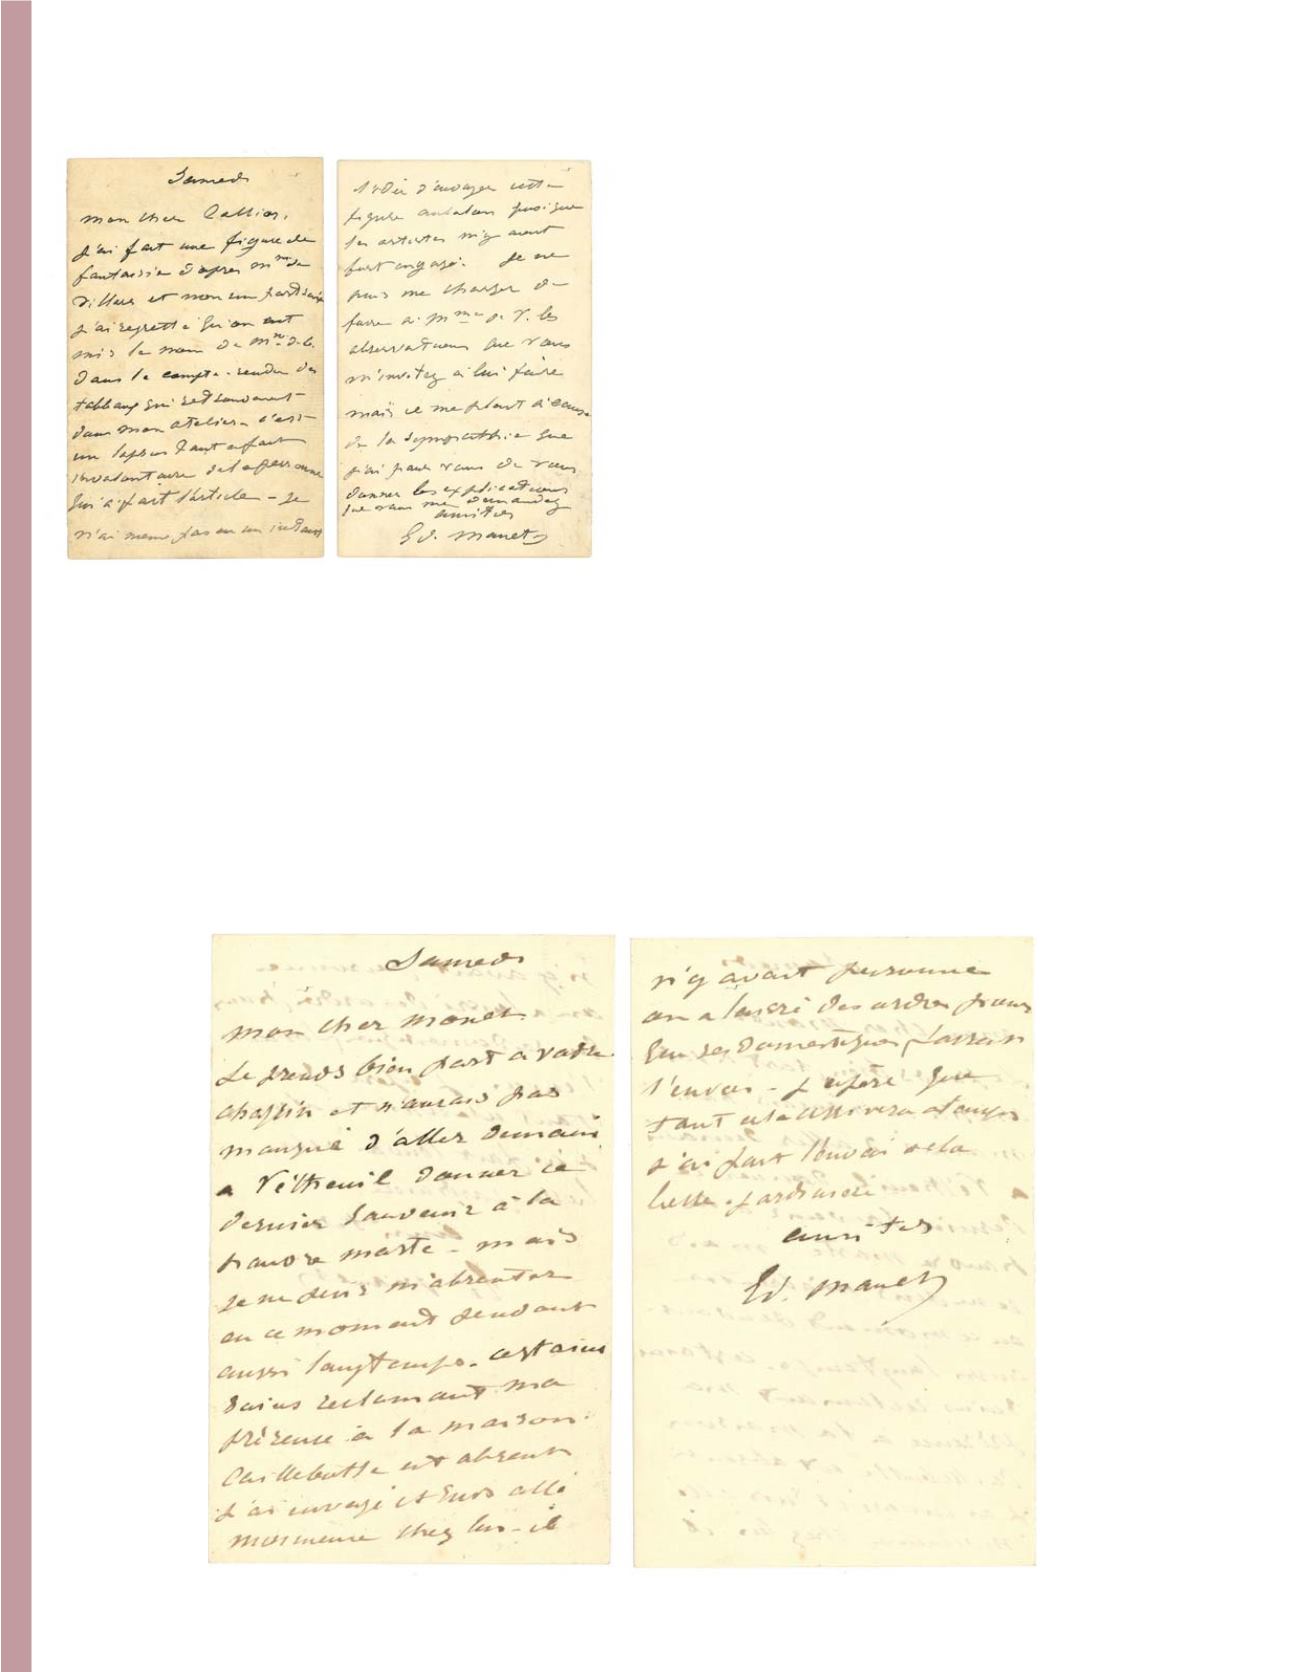 Samedi
mon cher Callias,
j'ai fait une figure de
fantaisie d'après mme de
Villars et non un portrait
j'ai regretté qu'on eut
mis le nom de mme de C.
dans le compte-rendu des
tableaux qui se trouvent
dans mon atelier. c'est
un lapsus tout a fait
involontaire de la personne
qui a fait l'article - je
n'ai meme pas eu un instant
l'idée d'envoyer cette
figure au salon puisque
les artistes m'y avait
fort engagé. je ne
puis me charger de
faire à mme de V. les
observations que vous
m'invitez à lui faire
mais il me plait à cause
de la sympathie que
j'ai pour vous de vous
donner les explications
que vous me demandez
amitiés
Ed. Manet
Samedi
mon cher Monet
Je prends bien part a votre
chagrin et n'aurais pas
manqué d'aller demain
a Vétheuil donner ce
dernier souvenir à la
pauvre morte - mais
je ne puis m'absenter
en ce moment pendant
aussi longtemps. certains
soins reclamant ma
présence à la maison.
Caillebotte est absent
j'ai envoyé et suis allé
moimeme chez lui - il
n'y avait personne
on a laissé des ordres pour
que ses domestiques fassent
l'envoi - j'espère que
tout cela arrivera a temps
j'ai fait l'envoi de la
amitiés
Ed. Manet